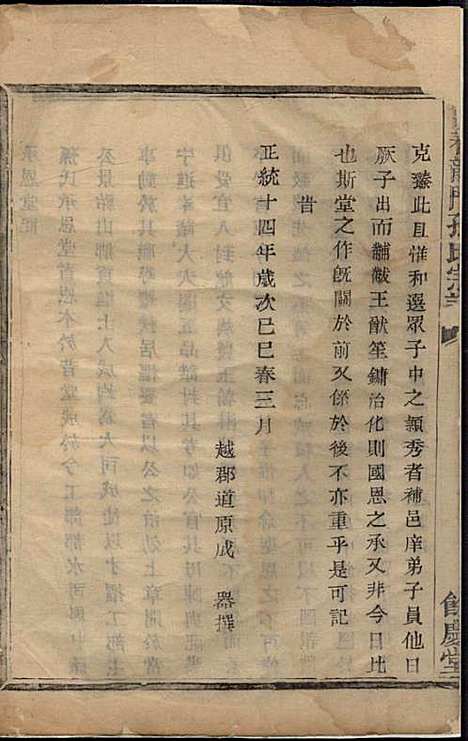 克臻此且惟和選眾子中之穎秀者補邑庠弟子員他日
厥子出而黼黻王猷笙鏞治化則國恩之承又非今日比
也斯堂之作旣關於前又係於後不亦重乎是可記
旹
正統十四年歲次己巳春三月
越郡道原成　器撰
龍門孫氏宗
餘慶堂